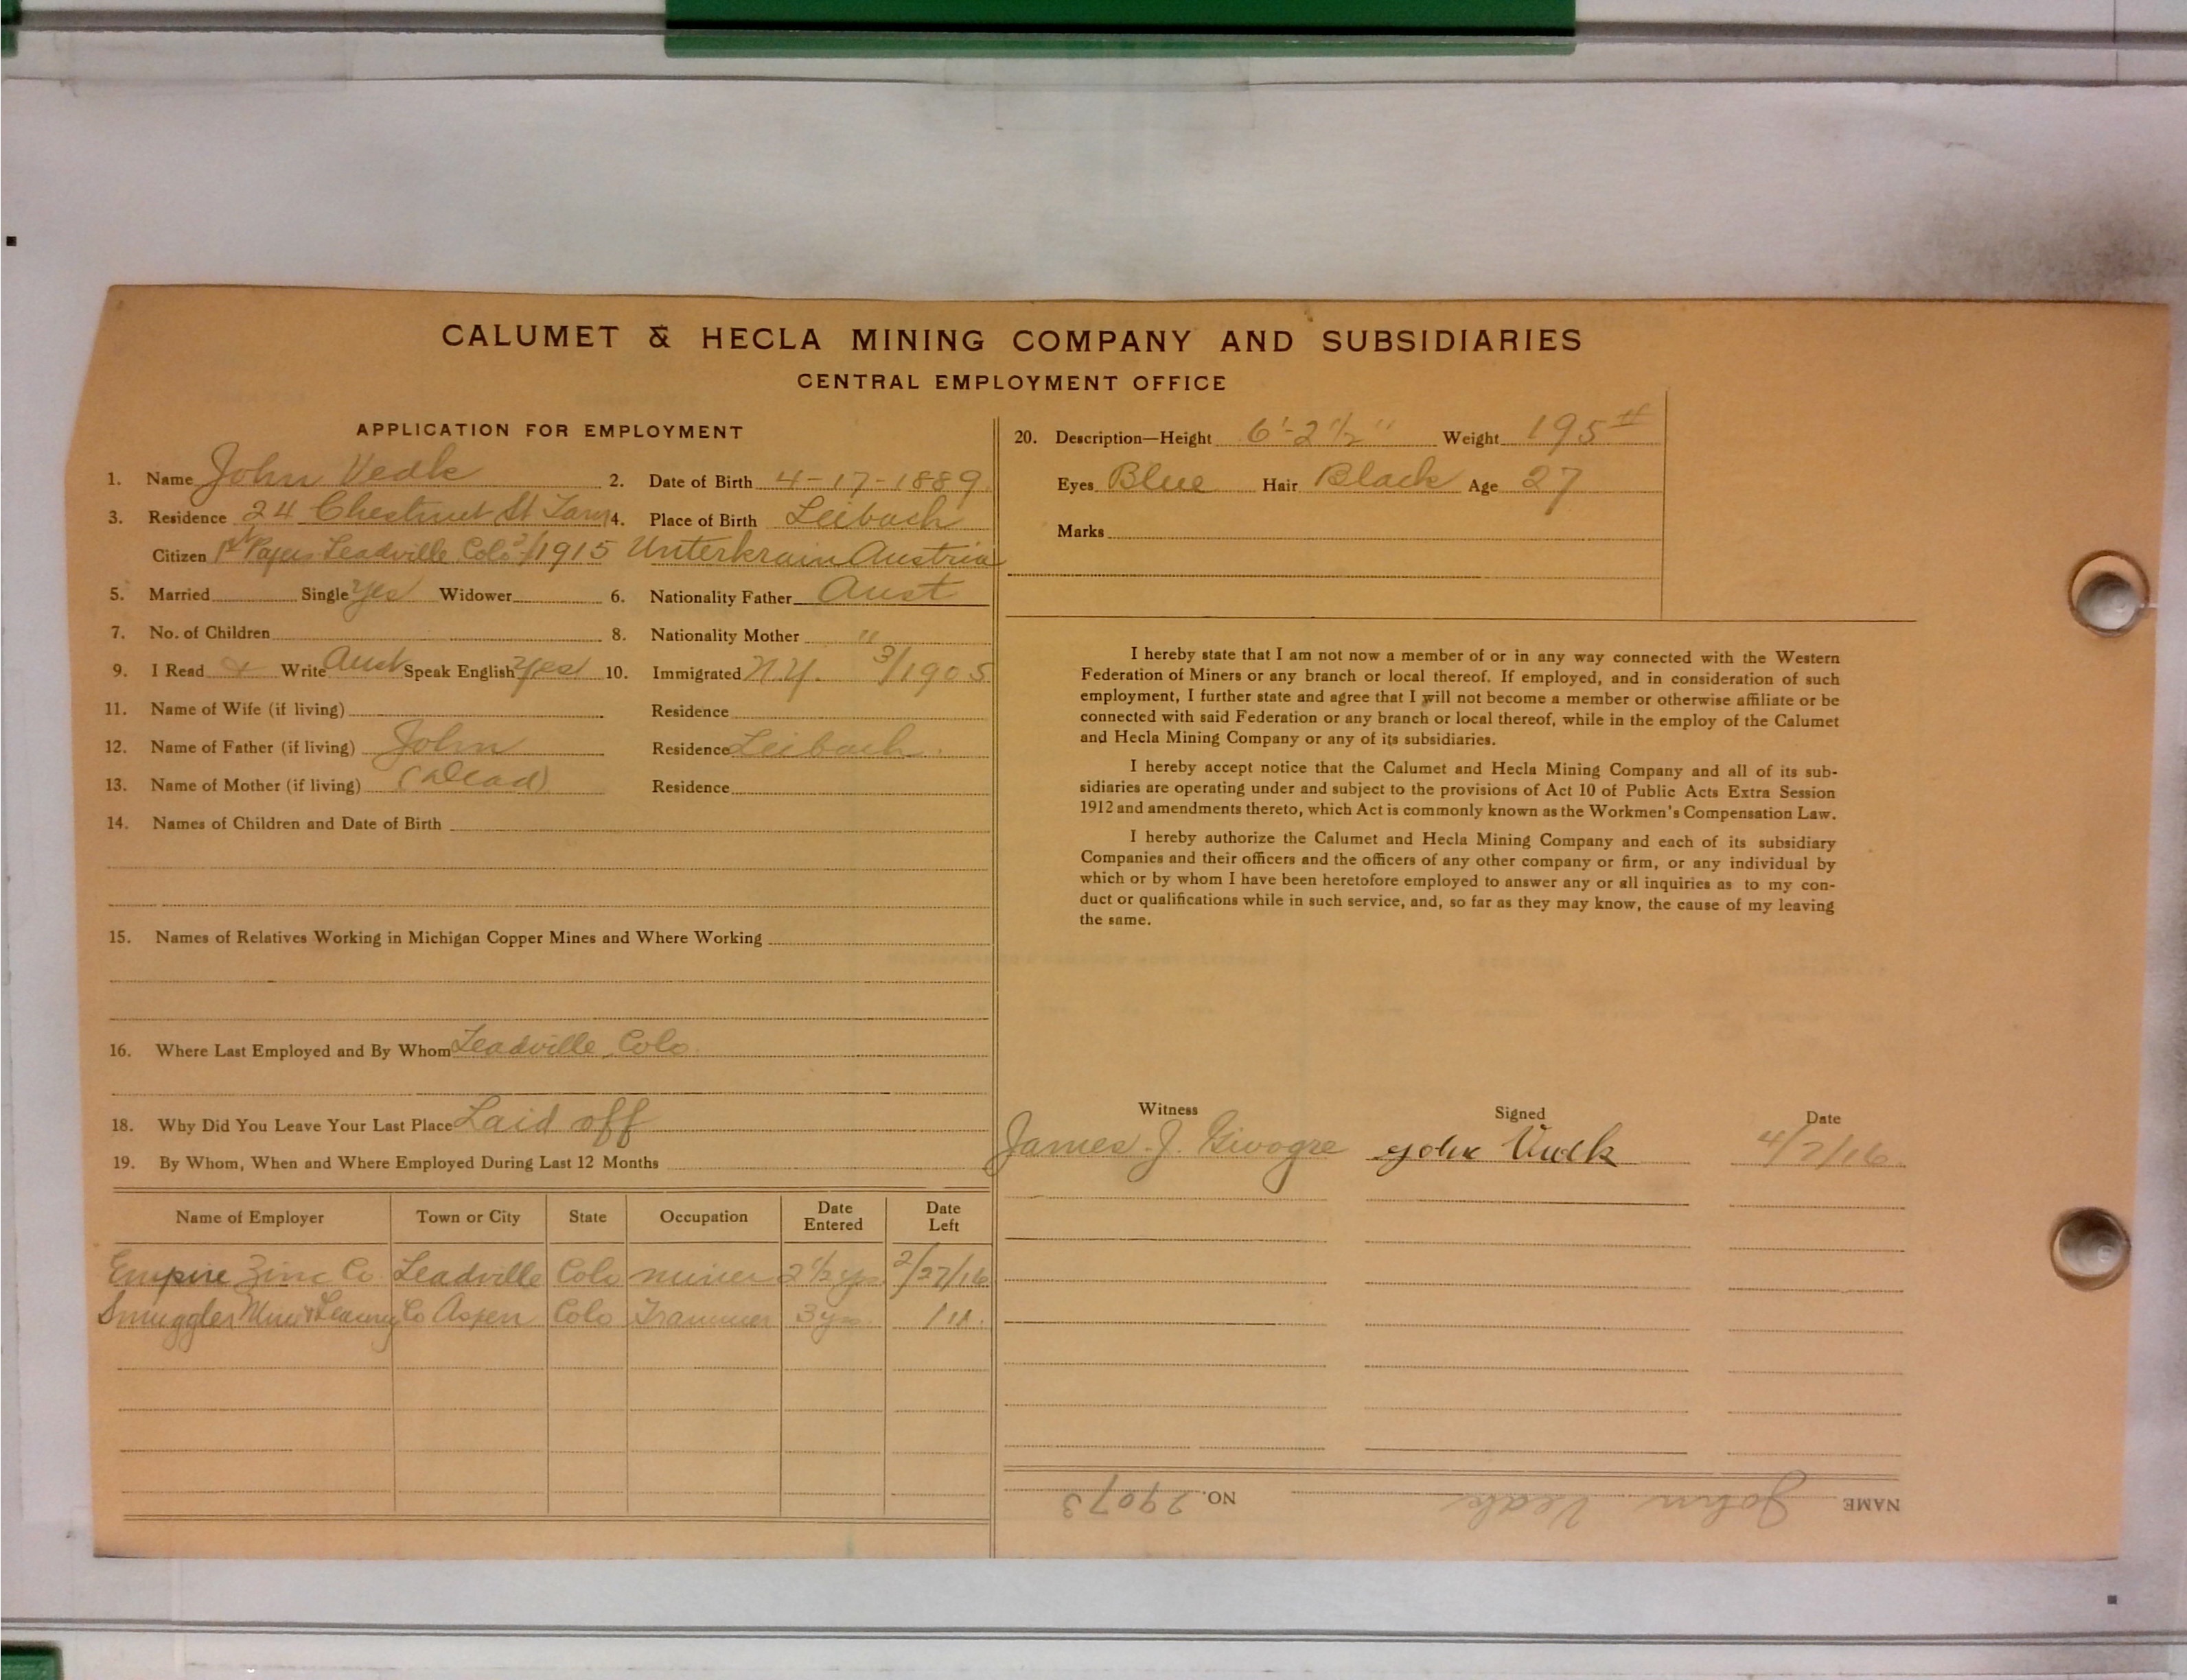 CALUMET & HECLA MINING COMPANY AND SUBSIDIARIES
CENTRAL EMPLOYMENT OFFICE
APPLICATION FOR EMPLOYMENT
1. Name John Vedk 2. Date of Birth 4-17-1889
3. Residence 24 Chestnut St 4. Place of Birth Leibach
Citizen 1st Papers Leadville Colo 2/1915 Unterkrain Austria
5. Married Single Yes Widower 6. Nationality Father Aust
7. No. of Children 8. Nationality Mother "
9. I Read & Write Aust Speak English Yes 10. Immigrated N.Y. 3/1905
11. Name of Wife (if living) Residence
12. Name of Father (if living) John Residence Leibach
13. Name of Mother (if living) (Dead) Residence
14. Names of Children and Date of Birth
15. Names of Relatives Working in Michigan Copper Mines and Where Working
16. Where Last Employed and By Whom Leadville, Colo
18. Why Did You Leave Your Last Place Laid off
19. By Whom, When and Where Employed During Last 12 Months
Name of Employer Town or City State Occupation Date Entered Date Left
Empire Zinc Co. Leadville Colo miner 2 1/2 yrs 2/27/16
Smuggler Co Aspen Colo Trammer 3 yrs
20. Description—Height 6'-2 1/2" Weight 195#
Eyes Blue Hair Black Age 27
Marks
I hereby state that I am not now a member of or in any way connected with the Western
Federation of Miners or any branch or local thereof. If employed, and in consideration of such
employment, I further state and agree that I will not become a member or otherwise affiliate or be
connected with said Federation or any branch or local thereof, while in the employ of the Calumet
and Hecla Mining Company or any of its subsidiaries.
I hereby accept notice that the Calumet and Hecla Mining Company and all of its sub-
sidiaries are operating under and subject to the provisions of Act 10 of Public Acts Extra Session
1912 and amendments thereto, which Act is commonly known as the Workmen's Compensation Law.
I hereby authorize the Calumet and Hecla Mining Company and each of its subsidiary
Companies and their officers and the officers of any other company or firm, or any individual by
which or by whom I have been heretofore employed to answer any or all inquiries as to my con-
duct or qualifications while in such service, and, so far as they may know, the cause of my leaving
the same.
Witness Signed Date
James J. John 4/7/16
NAME John Vedk NO. 29073